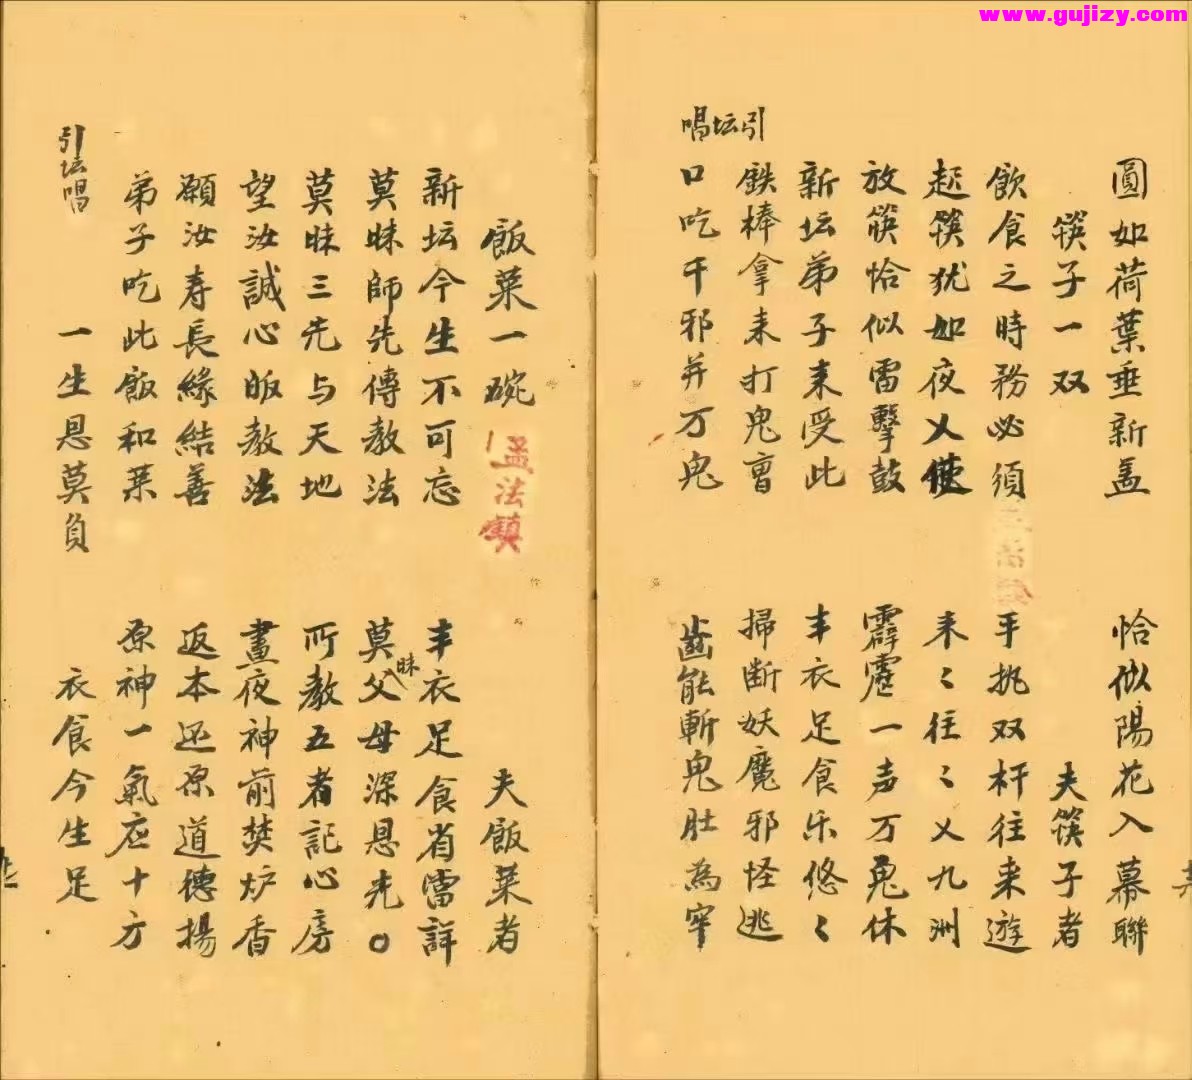 www.gujizy.com
圓如荷葉垂新盖　恰似陽花入幕聯
筷子一双　夫筷子者
飲食之時務必須　手挑双杆往来遊
起筷犹如夜乂使　来〻往〻乂九洲
放筷恰似雷擊鼓　霹靂一声万鬼休
新坛弟子来受此　丰衣足食乐悠〻
鉄棒拿来打鬼曺　掃断妖魔邪怪逃
引坛唱
口吃千邪并万鬼　齒能斬鬼肚為牢
飯菜一碗　夫飯菜者
孟法鎮
新坛今生不可忘　丰衣足食省當詳
莫昧師先傳教法　莫昧父母深恩光
莫昧三先与天地　所教五者記心房
望汝誠心皈教法　晝夜神前焚炉香
願汝寿長緣結善　返本还原道德揚
弟子吃此飯和菜　原神一氣应十方
引坛唱
一生恩莫負　衣食今生足